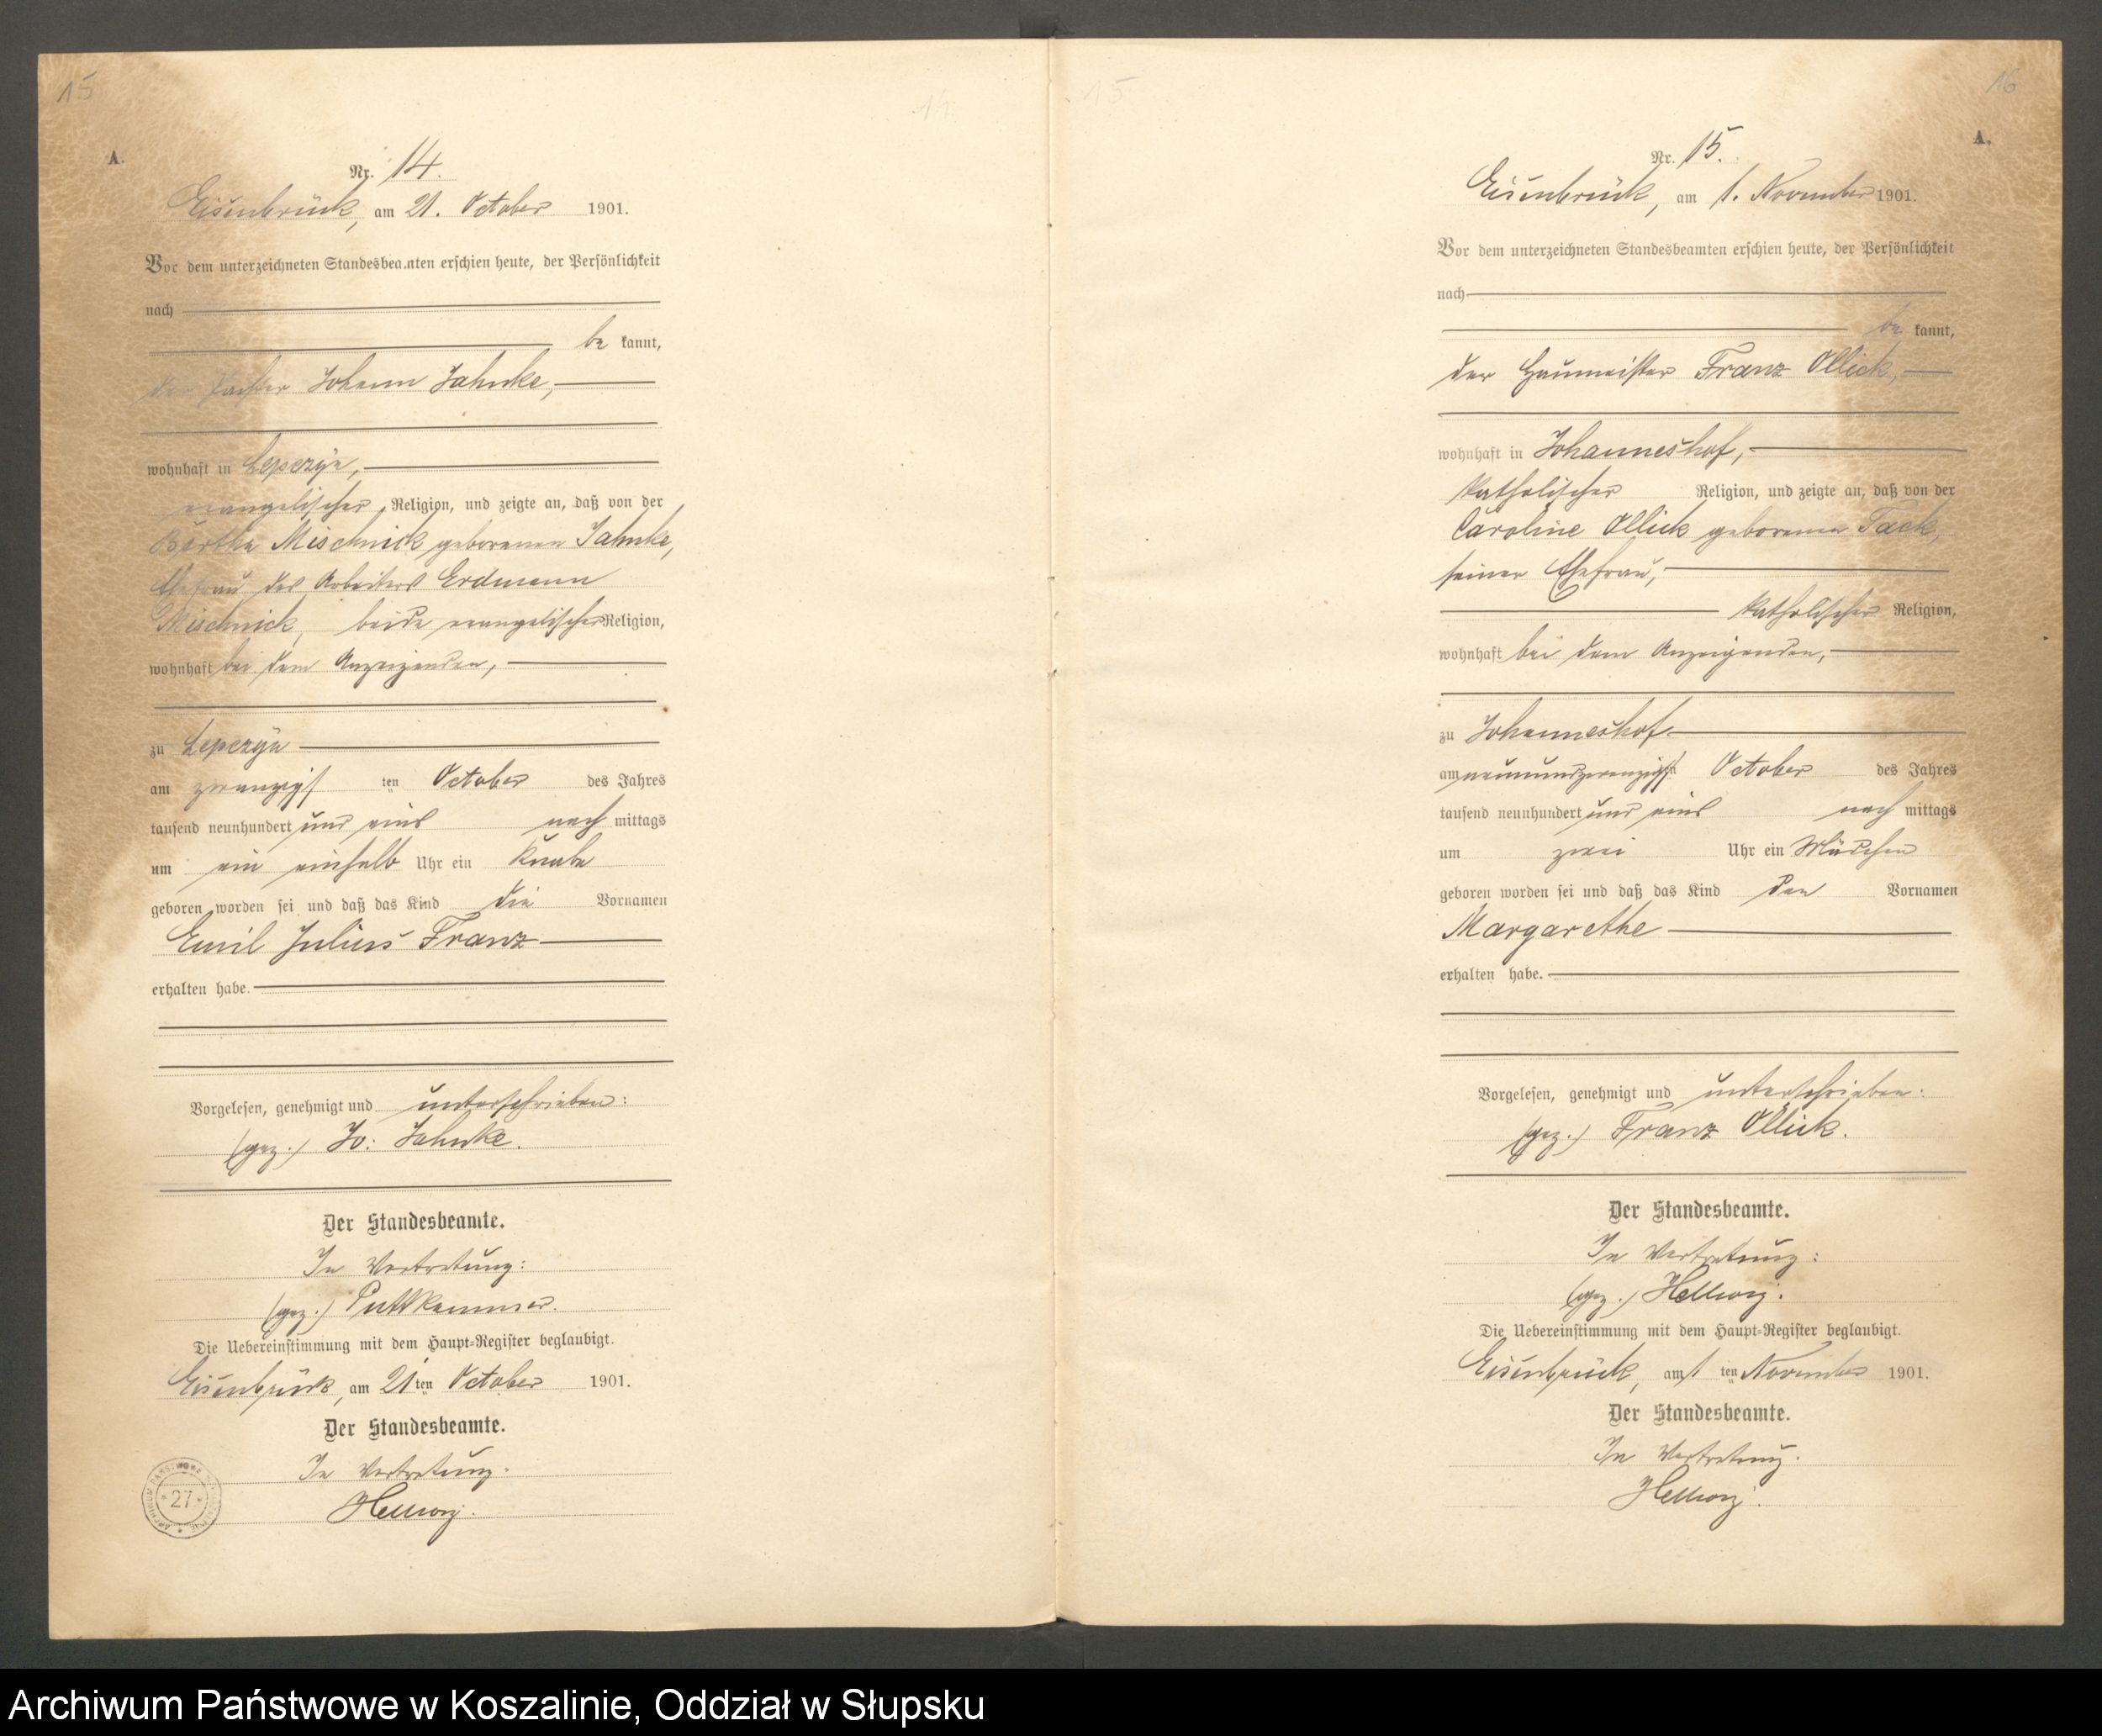 15
14
A.
Nr. 14.
Eisenbrück, am 21. October 1901.
Vor dem unterzeichneten Standesbeamten erschien heute, der Persönlichkeit
nach
be kannt,
der Pächter Johann Jahnke,
wohnhaft in Lepczyn,
evangelischer Religion, und zeigte an, daß von der
Bertha Mischnick geborenen Jahnke,
Ehefrau des Arbeiters Erdmann
Mischnick, beide evangelischer Religion,
wohnhaft bei dem Anzeigenden,
zu Lepczyn
am zwanzigs ten October des Jahres
tausend neunhundert und eins nach mittags
um ein einhalb Uhr ein Knabe
geboren worden sei und daß das Kind die Vornamen
Emil Julius Franz
erhalten habe.
Vorgelesen, genehmigt und unterschrieben:
(gez.) Jo: Jahnke.
Der Standesbeamte.
In Vertretung:
(gez.) Puttkammer.
Die Uebereinstimmung mit dem Haupt=Register beglaubigt.
Eisenbrück, am 21 ten October 1901.
Der Standesbeamte.
In Vertretung.
Hellwig.
ARCHIWUM PAŃSTWOWE
27
15
16
A.
Nr. 15.
Eisenbrück, am 1. November 1901.
Vor dem unterzeichneten Standesbeamten erschien heute, der Persönlichkeit
nach
be kannt,
der Haumeister Franz Ollick,
wohnhaft in Johanneshof,
katholischer Religion, und zeigte an, daß von der
Caroline Ollick geborenen Tack,
seiner Ehefrau,
katholischer Religion,
wohnhaft bei dem Anzeigenden,
zu Johanneshof
am neunundzwanzigsten October des Jahres
tausend neunhundert und eins nach mittags
um zwei Uhr ein Mädchen
geboren worden sei und daß das Kind den Vornamen
Margarethe
erhalten habe.
Vorgelesen, genehmigt und unterschrieben:
(gez.) Franz Ollick.
Der Standesbeamte.
In Vertretung:
(gez.) Hellwig.
Die Uebereinstimmung mit dem Haupt=Register beglaubigt.
Eisenbrück, am 1 ten November 1901.
Der Standesbeamte.
In Vertretung.
Hellwig.
Archiwum Państwowe w Koszalinie, Oddział w Słupsku